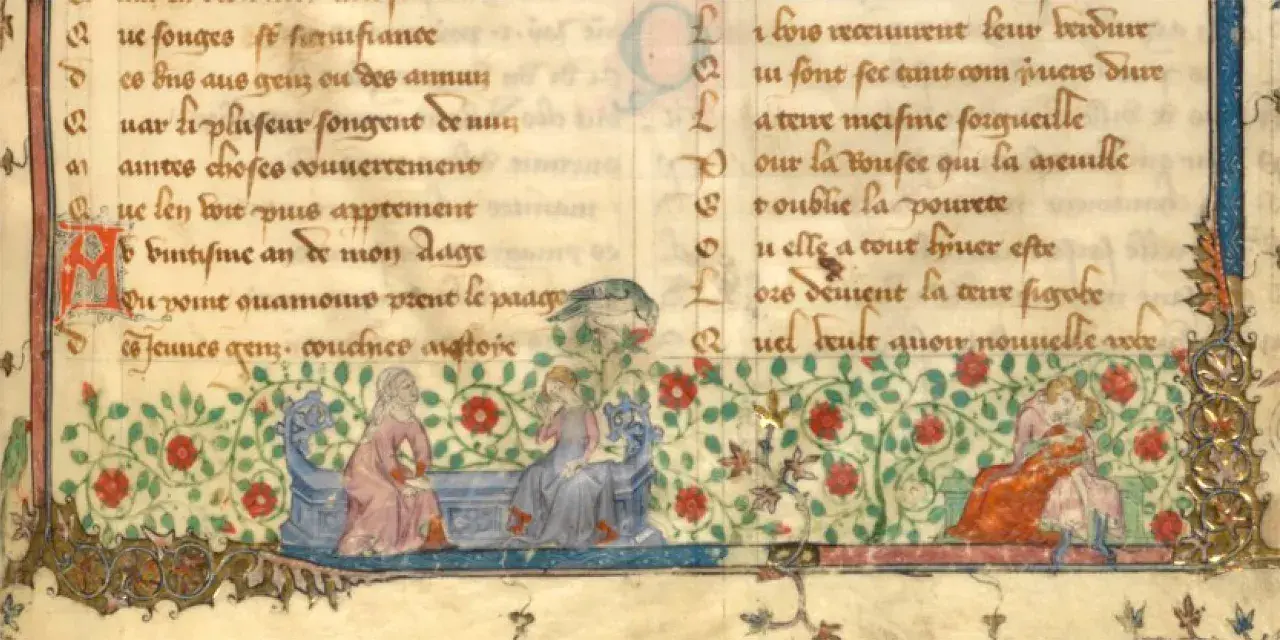 Que songes est senefiance
des bns aus genz ou des annuiz
Quar li pluseur songent de nuiz
maintes choses couuertement
Que len voit puis appertement
Au vintisme an de mon Aage
Ou point quamours prent le paage
des Jeunes genz. couchies mestoye
Li bois recueurent leur verdure
Qui sont sec tant com yuers dure
La terre meisme sorgueille
Pour la Rousee qui la meuille
Et oublie la pourete
Ou elle a tout lyuer este
Lors deuient la terre si gobe
Quel veult auoir nouuelle robe